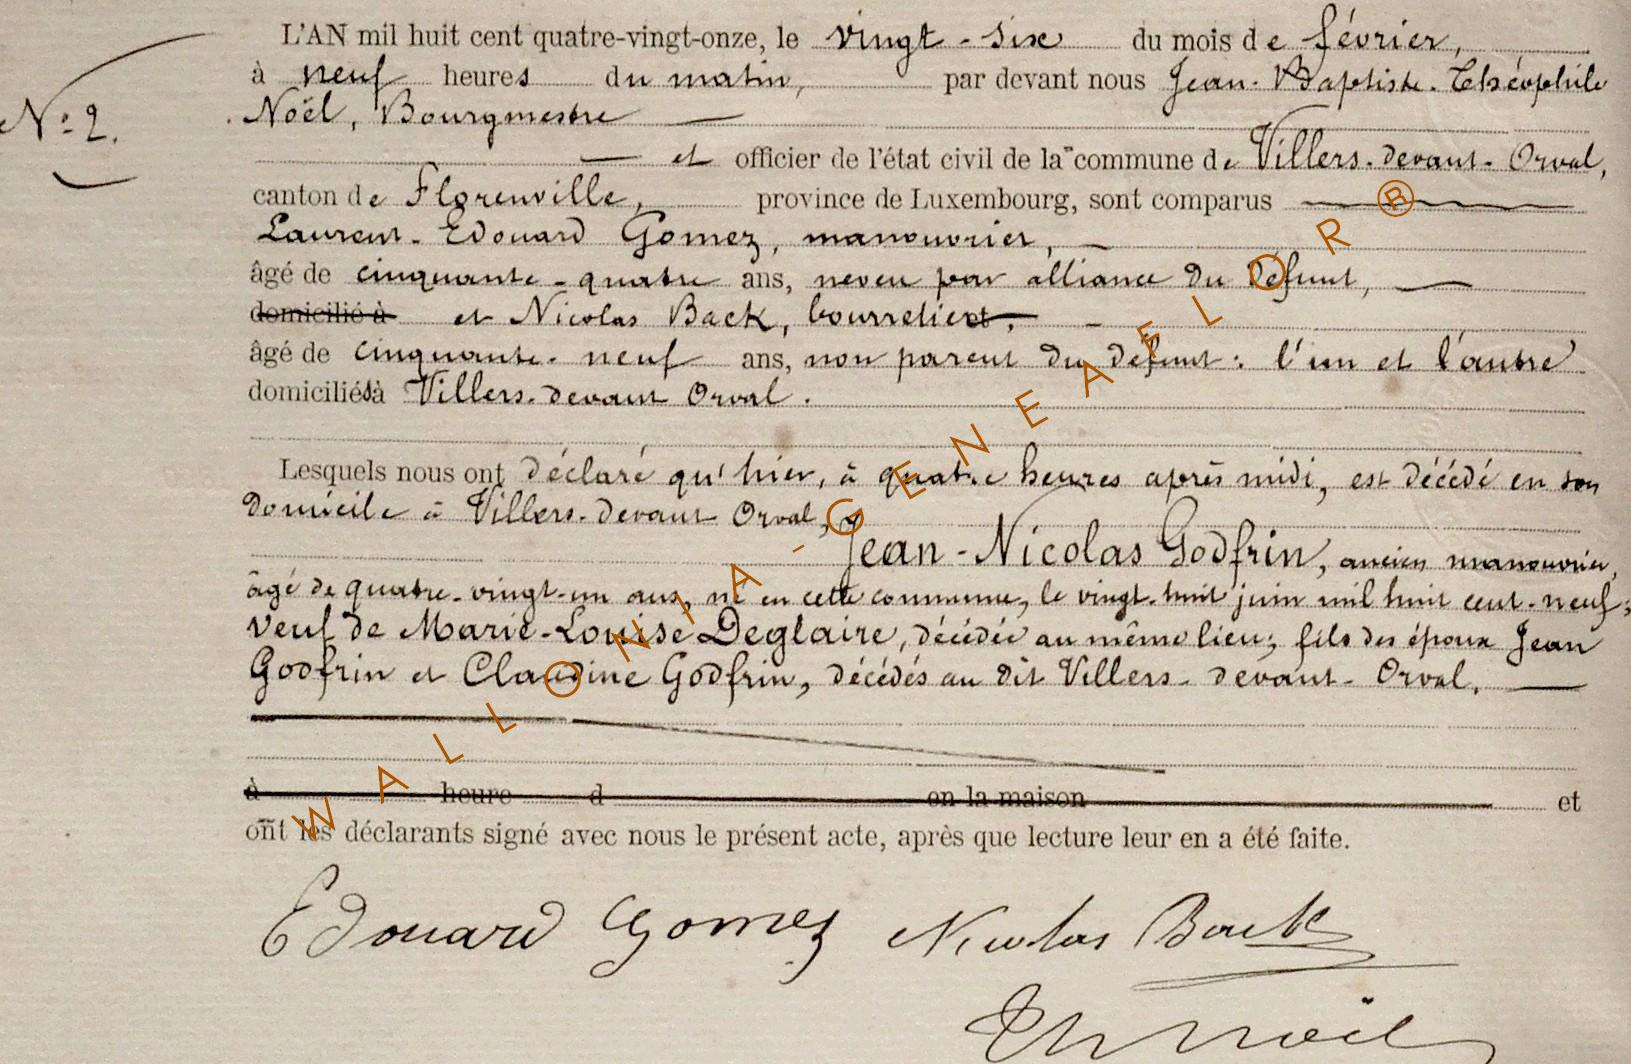 L'AN mil huit cent quatre-vingt-onze, le vingt-six du mois de février,
à neuf heures du matin, par devant nous Jean-Baptiste-Théophile
N° 2.
Noël, Bourgmestre
et officier de l'état civil de la commune de Villers-devant-Orval,
canton de Florenville, province de Luxembourg, sont comparus
Laurent-Edouard Gomez, manouvrier,
âgé de cinquante-quatre ans, neveu par alliance du défunt,
domicilié à et Nicolas Back, bourrelier,
âgé de cinquante-neuf ans, non parent du défunt: l'un et l'autre
domiciliés à Villers-devant Orval.
Lesquels nous ont déclaré qu'hier, à quatre heures après midi, est décédé en son
domicile à Villers-devant Orval,
Jean-Nicolas Godfrin, ancien manouvrier,
âgé de quatre-vingt-un ans, né en cette commune, le vingt-huit juin mil huit cent-neuf;
veuf de Marie-Louise Deglaire, décédée au même lieu; fils des époux Jean
Godfrin et Claudine Godfrin, décédés au dit Villers-devant-Orval.
à heure d en la maison et
ont les déclarants signé avec nous le présent acte, après que lecture leur en a été faite.
Edouard Gomez Nicolas Back
Th Noël
WALLONIA-GENEAFLOR®